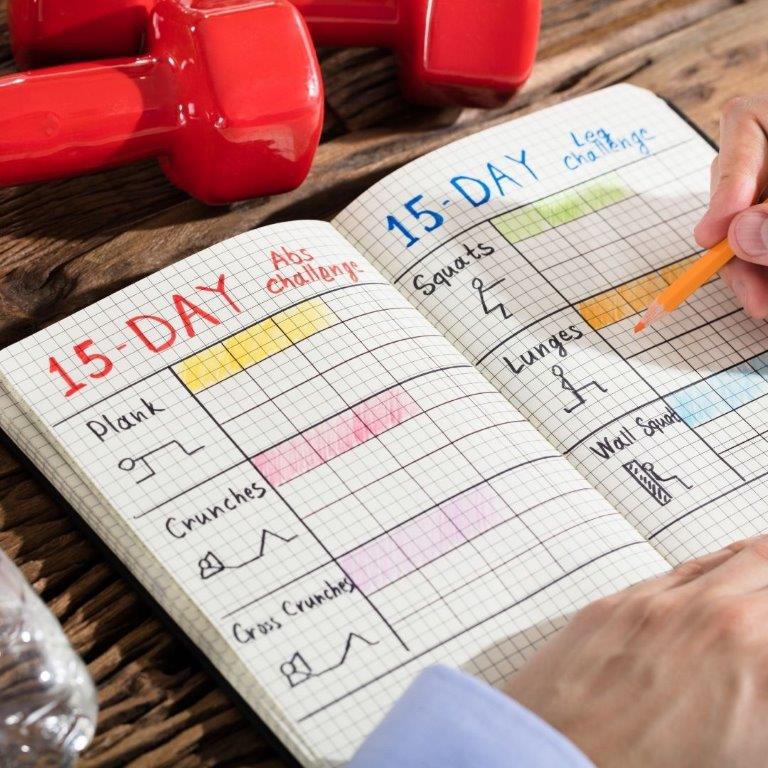 15-DAY
Abs
challenge
Plank
Crunches
Cross Crunches
15-DAY
Leg
challenge
Squats
Lunges
Wall Squat